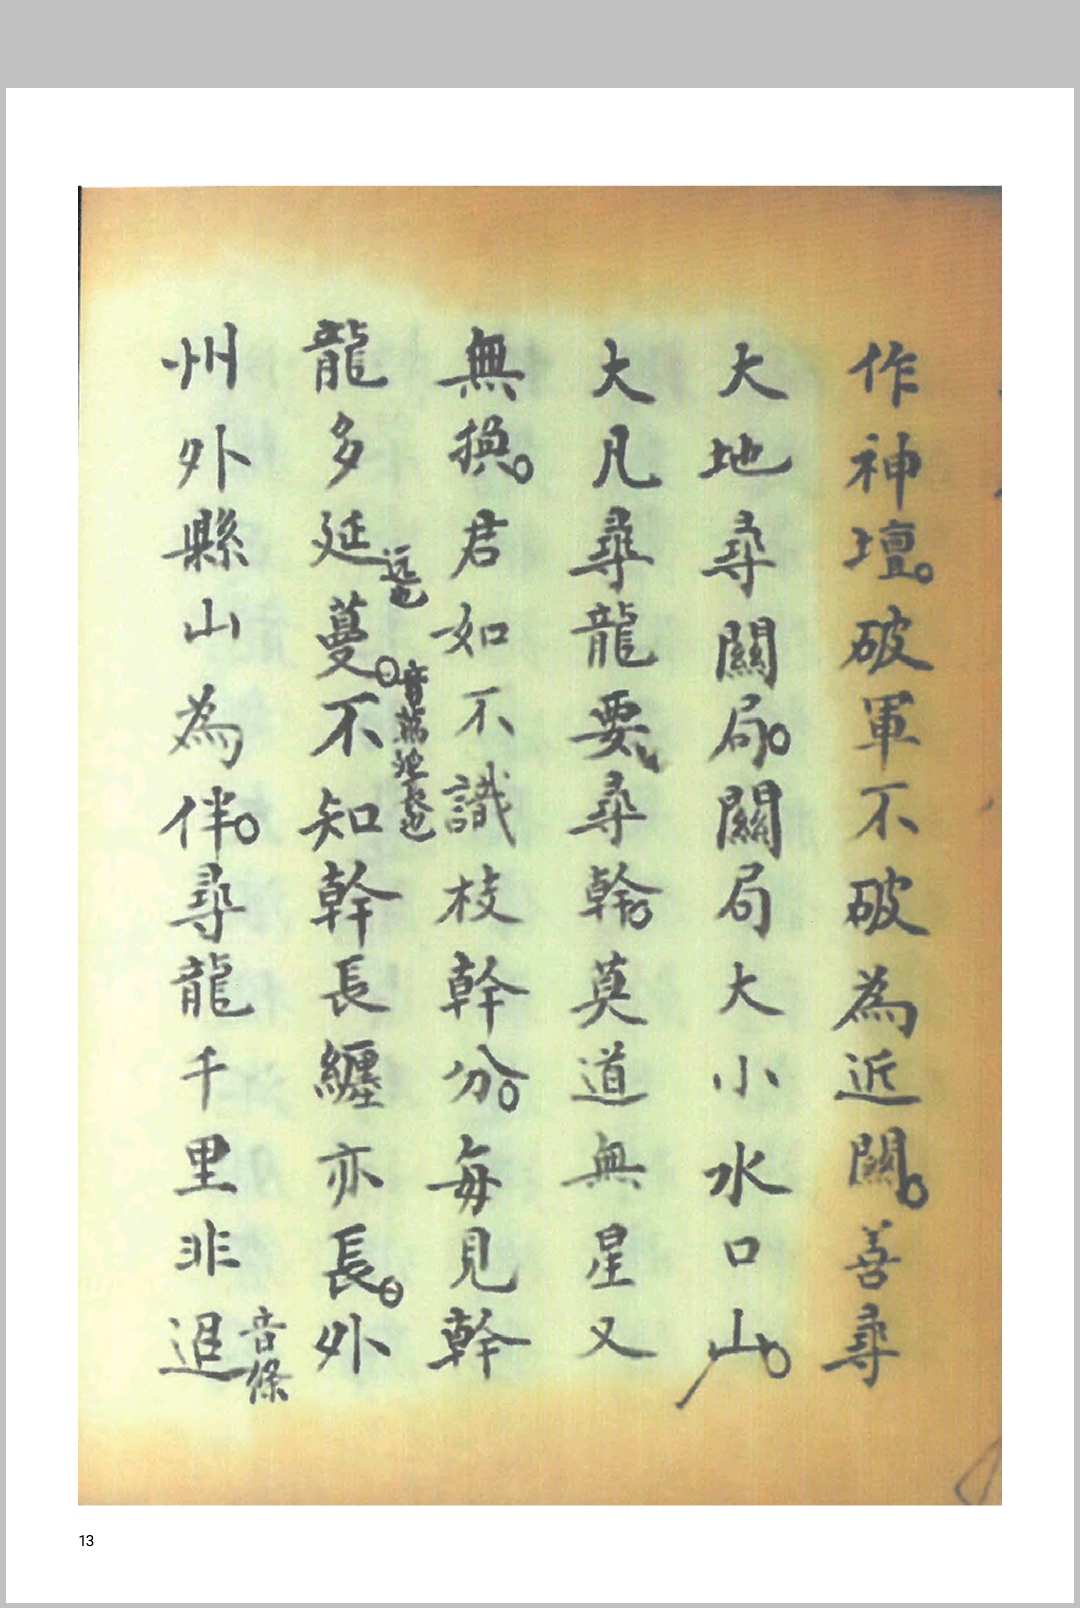 作神壇。破軍不破為近關。善尋
大地尋關局。關局大小水口山。
大凡尋龍要尋幹。莫道無星又
無換。君如不識枝幹分。每見幹
龍多延蔓。不知幹長纏亦長。外
远也
州外縣山為伴。尋龍千里非
音條
13